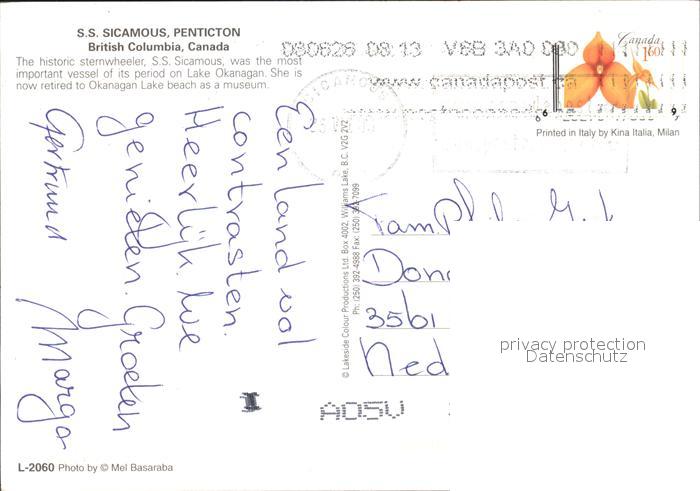 S.S. SICAMOUS, PENTICTON
British Columbia, Canada
The historic sternwheeler, S.S. Sicamous, was the most
important vessel of its period on Lake Okanagan. She is
now retired to Okanagan Lake beach as a museum.
080626 08:13 V6B 3A0
www.canadapost.ca
Canada
1.60
Printed in Italy by Kina Italia, Milan
Een land vol
contrasten.
Heerlijk. We
genieten. Groeten
Gertrud Margo
© Lakeside Colour Productions Ltd. Box 4002, Williams Lake, B.C. V2G 2V2
Ph: (250) 392-4988 Fax: (250) 392-7099
Fam.
3561
Ned
privacy protection
Datenschutz
A05V
L-2060 Photo by © Mel Basaraba